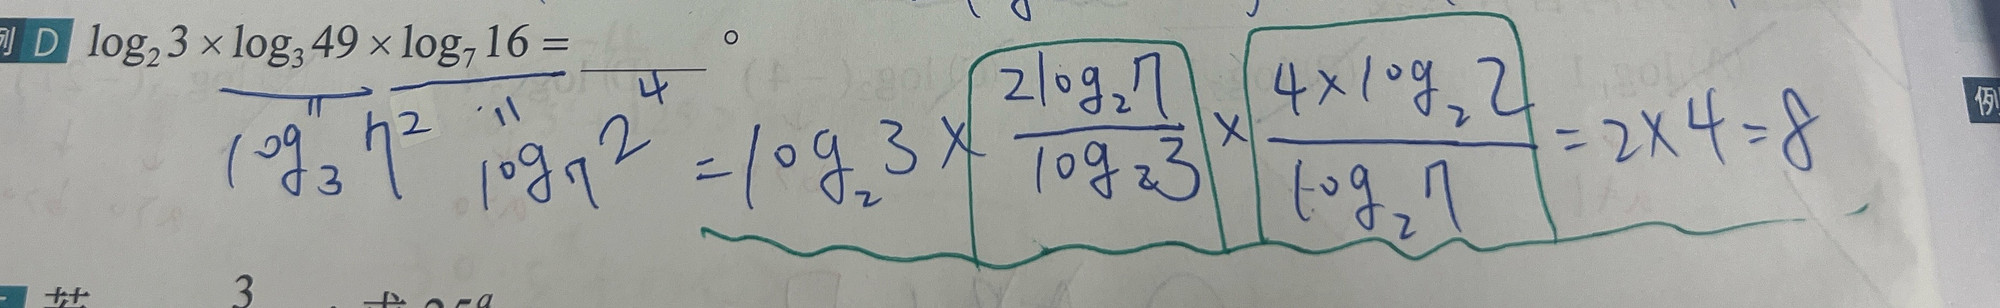 例 D log₂ 3 × log₃ 49 × log₇ 16 = ______ 。
log₃ 7² log₇ 2⁴ = log₂ 3 × (2log₂ 7)/(log₂ 3) × (4 × log₂ 2)/(log₂ 7) = 2 × 4 = 8
例
3